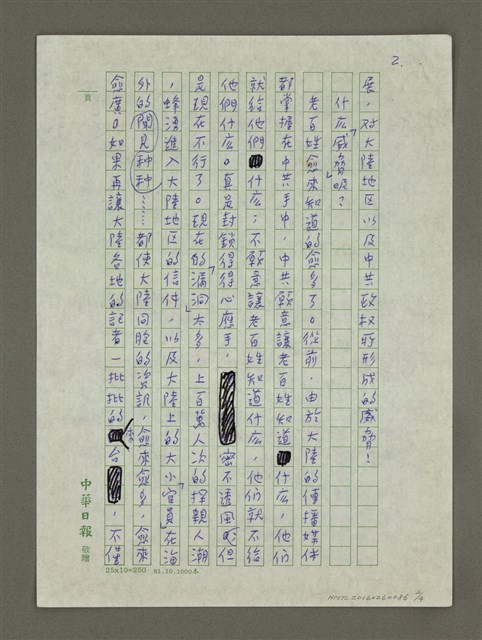 2.
展，对大陸地区以及中共政权所形成的威脅！
什広威脅呢？
老百姓愈來知道的愈多了。從前，由於大陸的傳播媒体
都掌握在中共手中，中共願意讓老百姓知道什広，他們
就給他們什広；不願意讓老百姓知道什広，他们就不給
他們什広。真是封鎖得得心應手，密不透風。但
是現在不行了。現在的「漏洞」太多，上百萬人次的探親人潮
，蜂湧進入大陸地区的信件，以及大陸上的大小「官員」在海
外的聞見种种……都使大陸同胞的资訊，愈來愈多，愈來
愈廣。如果再讓大陸各地的記者一批批的來台，不僅
頁
中華日報 敬贈
25x10=250 81.10.2000本
NMTL20160260086 2/4